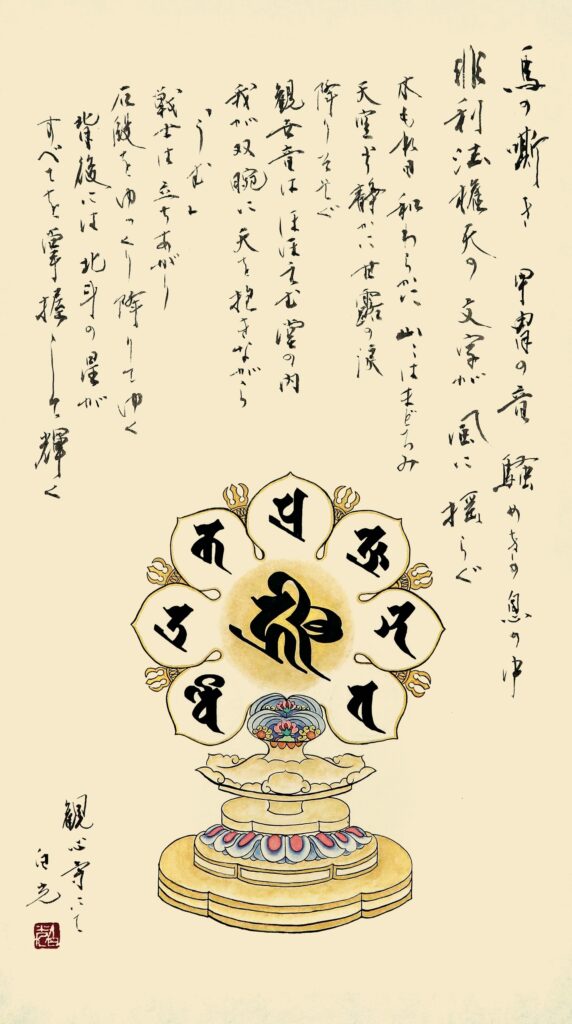 馬の嘶き 甲冑の音 騒めきの息の中
非利法権天の文字が 風に揺らぐ
木も 和わらかに 山はまどろみ
天空 静かに 甘露の涙
降りそそぐ
観世音は ほほえむ 堂の内
我が双腕に 天を抱きながら
「うむ」
戦士は 立ちあがり
石段をゆっくり 降りてゆく
背後には 北斗の星が
すべてを掌握して 輝く
観心寺にて
白光